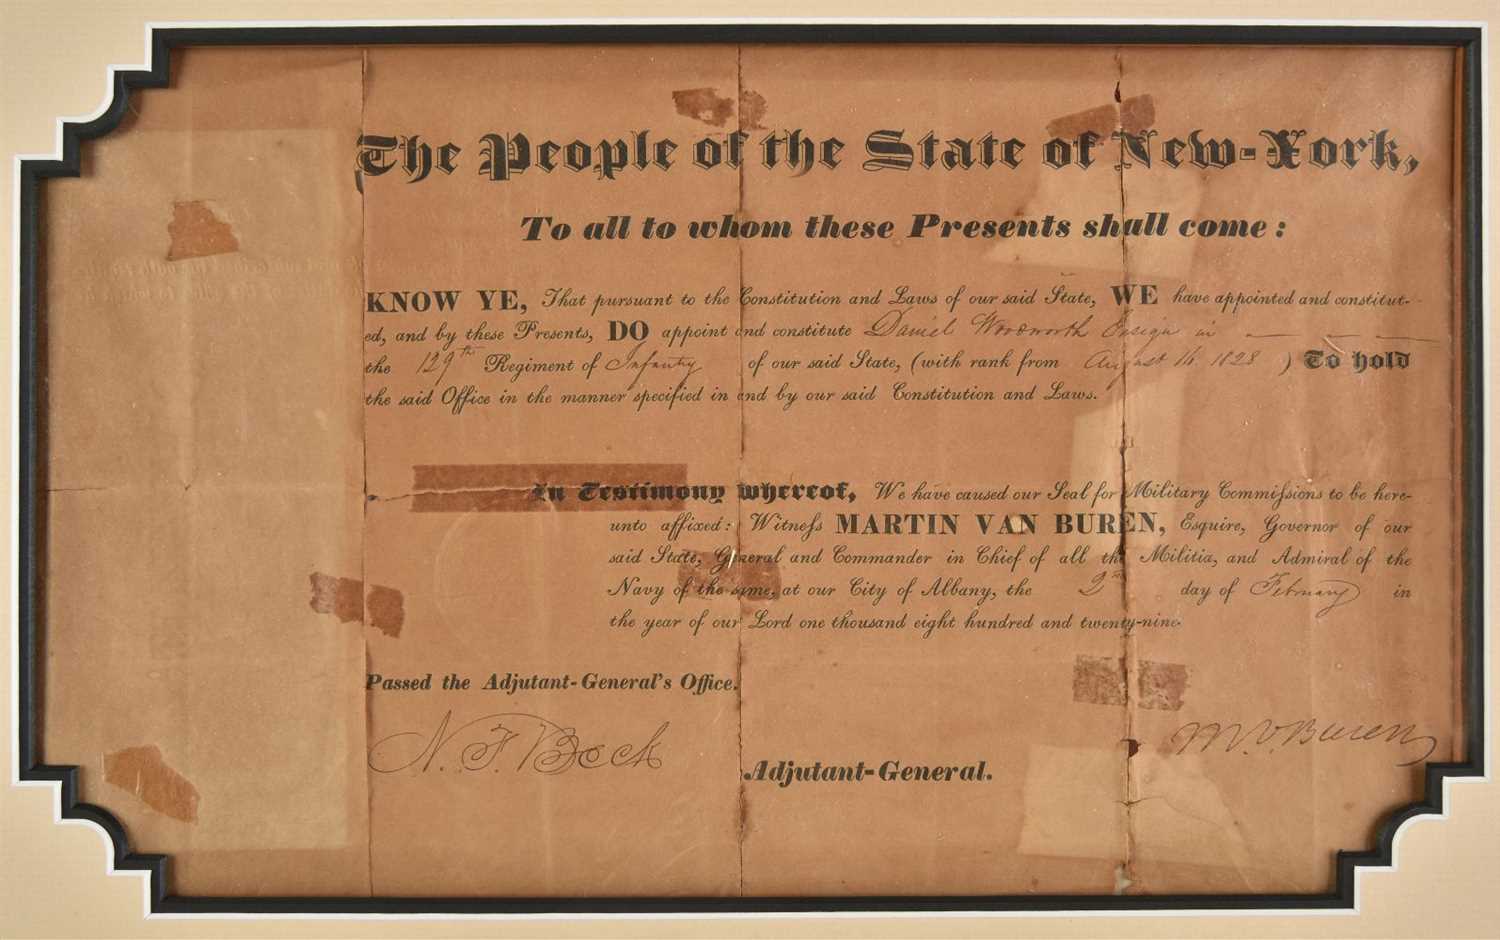 The People of the State of New-York,
To all to whom these Presents shall come:
KNOW YE, That pursuant to the Constitution and Laws of our said State, WE have appointed and constitut-
ed, and by these Presents, DO appoint and constitute Daniel Woodworth Ensign in
the 129th Regiment of Infantry of our said State, (with rank from August 16. 1828 ) To hold
the said Office in the manner specified in and by our said Constitution and Laws.
In Testimony whereof, We have caused our Seal for Military Commiſsions to be here-
unto affixed: Witneſs MARTIN VAN BUREN, Esquire, Governor of our
said State, General and Commander in Chief of all the Militia, and Admiral of the
Navy of the same, at our City of Albany, the 2nd day of February in
the year of our Lord one thousand eight hundred and twenty-nine.
Passed the Adjutant-General's Office.
N. F. Beck
M. V. Buren
Adjutant-General.